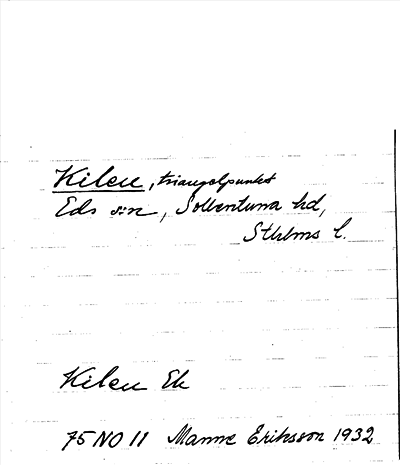 Kilen, triangelpunkt
Eds sn, Sollentuna hd,
Sthlms l.
Kilen Ek
75 NO 11 Manne Eriksson 1932